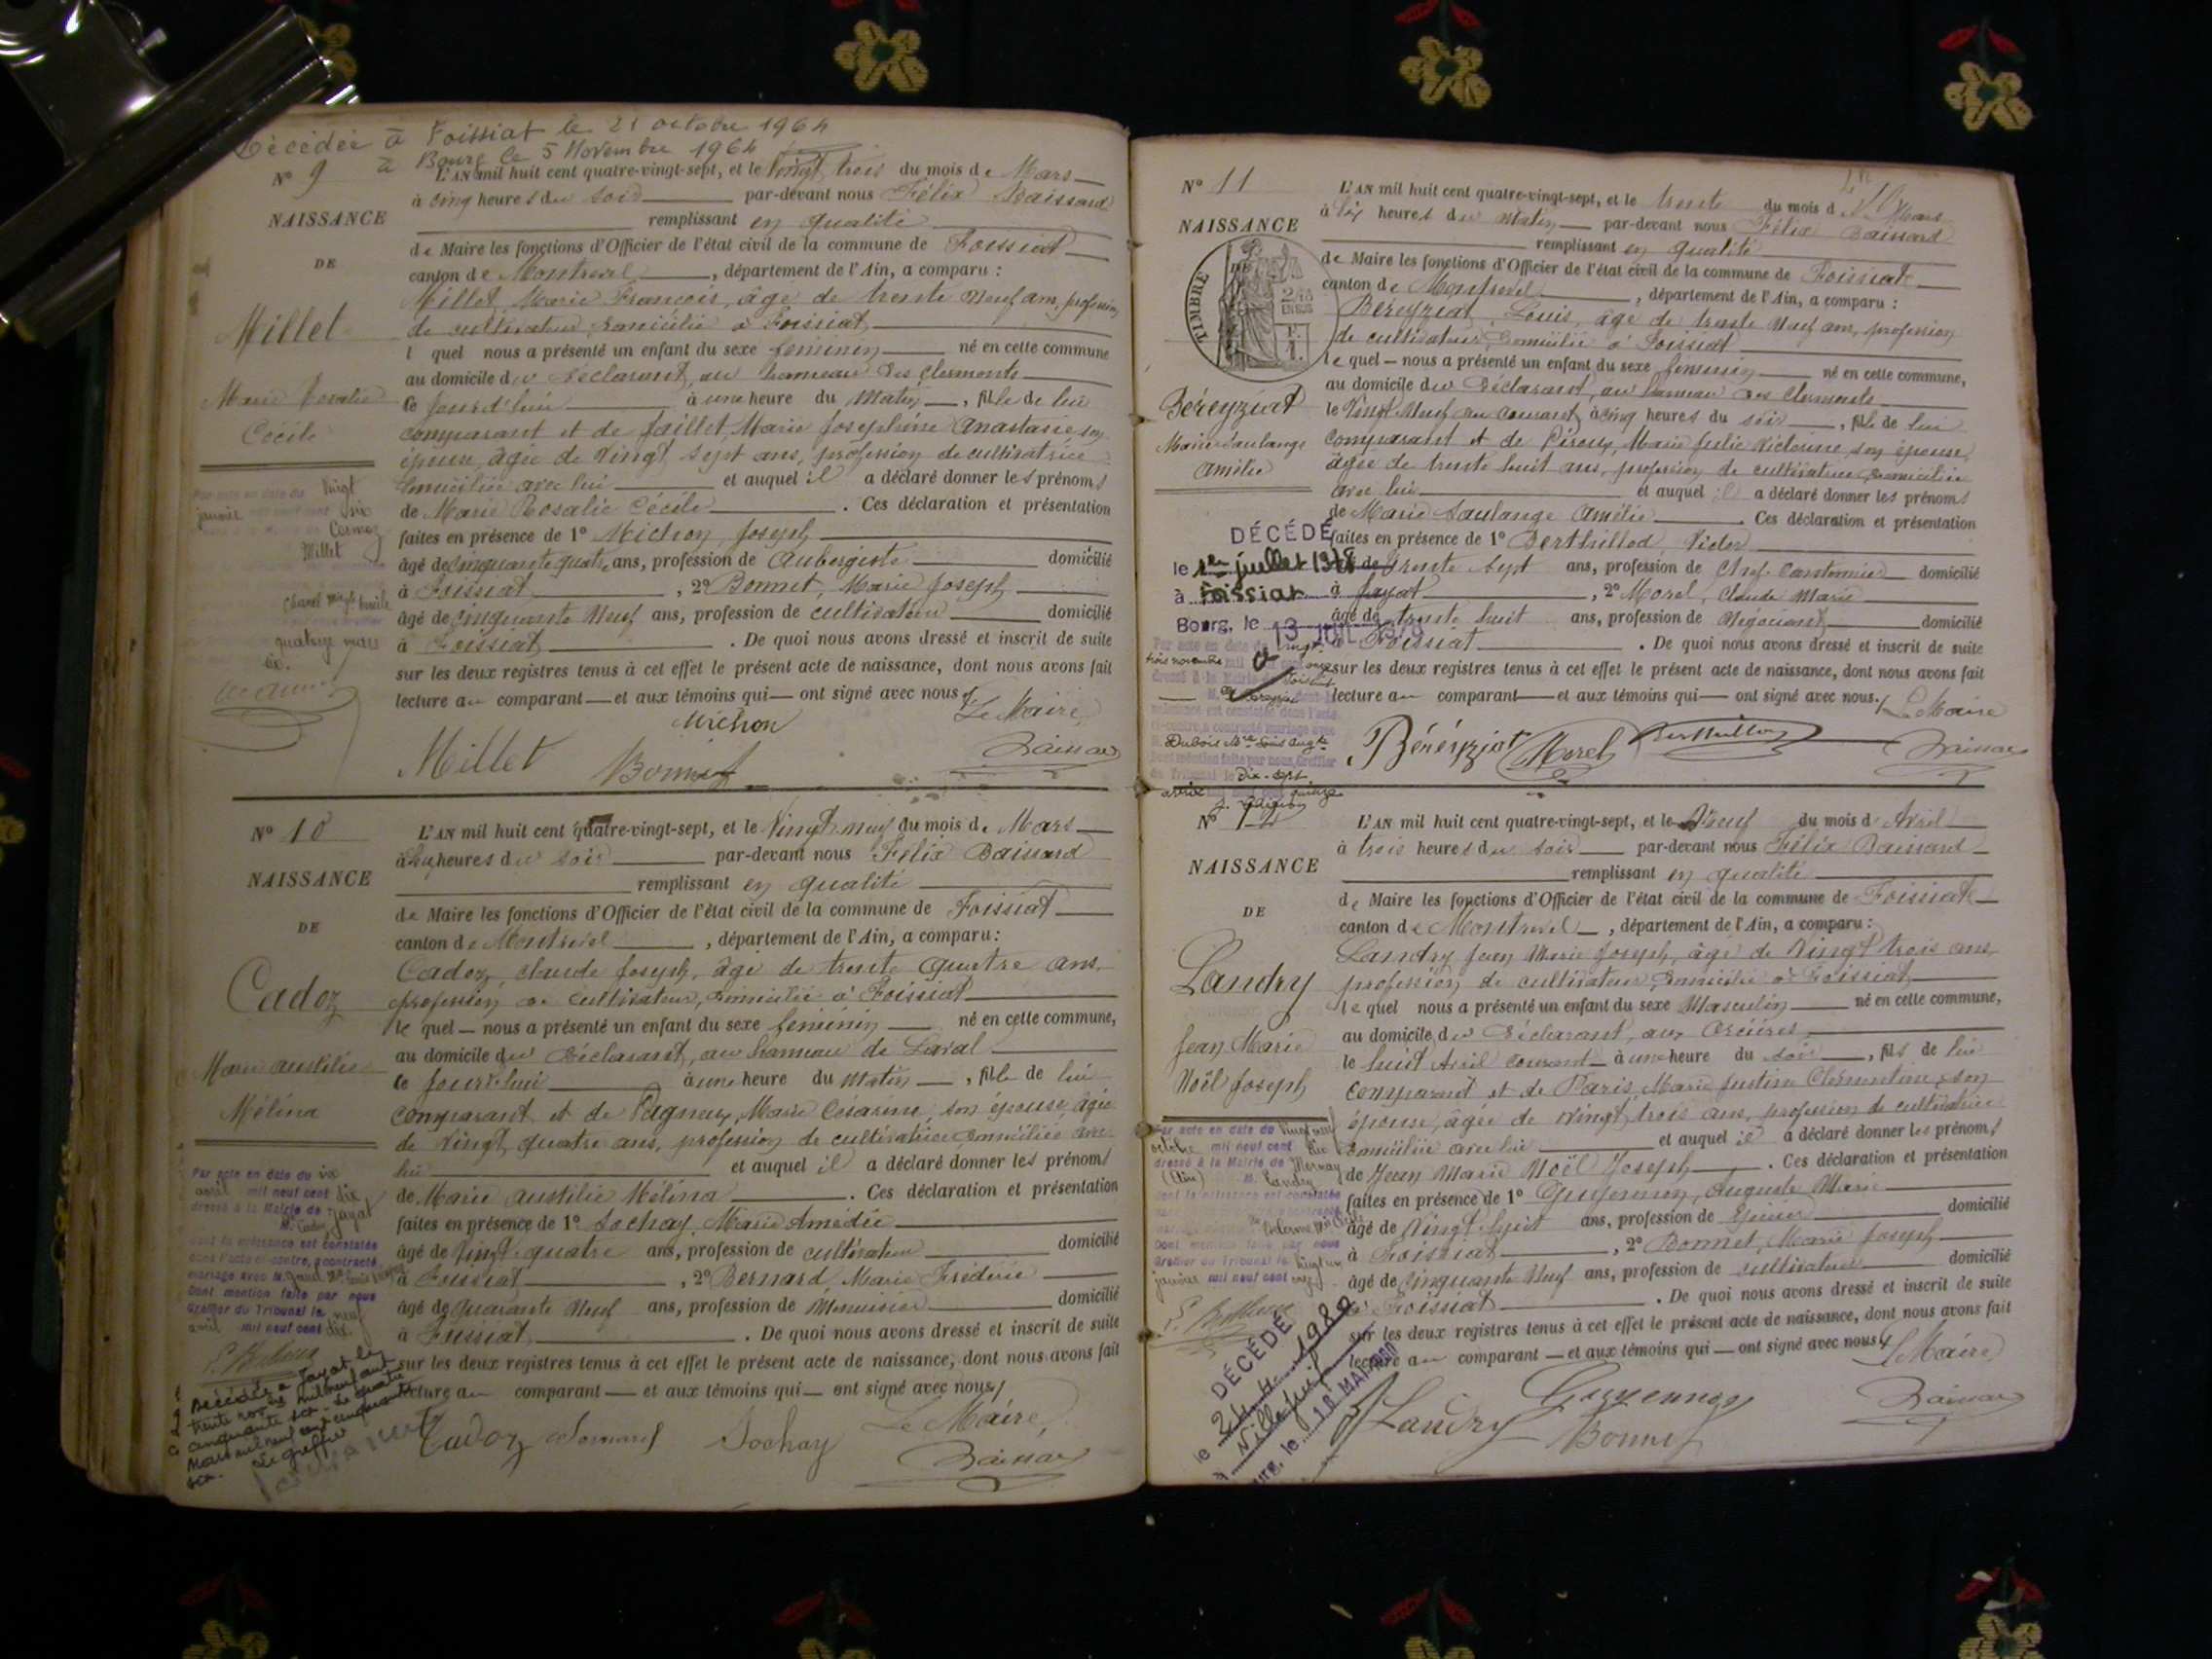 Décédée à Foissiat le 21 octobre 1964
à Bourg le 5 Novembre 1964
N° 9
NAISSANCE
DE
Millet
Marie Rosalie
Cécile
L'AN mil huit cent quatre-vingt-sept, et le Vingt trois du mois de Mars
à cinq heures du soir par-devant nous Félix Baissard
remplissant en qualité
de Maire les fonctions d'Officier de l'état civil de la commune de Foissiat
canton de Montrevel, département de l'Ain, a comparu :
Millet, Marie François, âgé de trente neuf ans, profession
de cultivateur domicilié à Foissiat
l quel nous a présenté un enfant du sexe féminin né en cette commune
au domicile du déclarant, au hameau des Clermonts
ce jourd'hui à une heure du matin, fille de lui
comparant et de Jaillet, Marie Joséphine Anastasie son
épouse, âgée de vingt sept ans, profession de cultivatrice
domiciliée avec lui et auquel il a déclaré donner les prénoms
de Marie Rosalie Cécile. Ces déclaration et présentation
faites en présence de 1° Michon, Joseph
âgé de cinquante quatre ans, profession de Aubergiste domicilié
à Foissiat, 2° Bonnet, Marie Joseph
âgé de cinquante neuf ans, profession de cultivateur domicilié
à Foissiat. De quoi nous avons dressé et inscrit de suite
sur les deux registres tenus à cet effet le présent acte de naissance, dont nous avons fait
lecture au comparant et aux témoins qui ont signé avec nous
Le Maire
Michon
Millet Bonnet Baissard
Par acte en date du vingt
janvier
Millet
quatorze mars
N° 10
NAISSANCE
DE
Cadoz
Marie Austilie
Mélina
L'AN mil huit cent quatre-vingt-sept, et le Vingt neuf du mois de Mars
heures du soir par-devant nous Félix Baissard
remplissant en qualité
de Maire les fonctions d'Officier de l'état civil de la commune de Foissiat
canton de Montrevel, département de l'Ain, a comparu :
Cadoz, Claude Joseph, âgé de trente quatre ans,
profession de cultivateur, domicilié à Foissiat
le quel nous a présenté un enfant du sexe féminin né en cette commune,
au domicile du déclarant, au hameau de Laval
ce jourd'hui à une heure du matin, fille de lui
comparant et de Pagneux, Marie Césarine, son épouse, âgée
de vingt quatre ans, profession de cultivatrice domiciliée avec
lui et auquel il a déclaré donner les prénoms
de Marie Austilie Mélina. Ces déclaration et présentation
faites en présence de 1° Sochay, Marie Amédée
âgé de vingt quatre ans, profession de cultivateur domicilié
à Foissiat, 2° Bernard, Marie Frédéric
âgé de quarante neuf ans, profession de Menuisier domicilié
à Foissiat. De quoi nous avons dressé et inscrit de suite
sur les deux registres tenus à cet effet le présent acte de naissance, dont nous avons fait
lecture au comparant et aux témoins qui ont signé avec nous
Le Maire,
Cadoz Bernard Sochay Baissard
Par acte en date du six
avril mil neuf cent dix
dressé à la Mairie de Jayat
M. Cadoz
dont la naissance est constatée
dans l'acte ci-contre, a contracté
mariage avec M.
Dont mention faite par nous
Greffier du Tribunal le neuf
avril mil neuf cent dix
Décédée à Jayat le
trente mil neuf cent
cinquante six. Le quatre
Mars mil neuf cent cinquante
six. Le greffier
N° 11
NAISSANCE
DE
TIMBRE
Béreyziat
Marie Saulange
Amélie
L'AN mil huit cent quatre-vingt-sept, et le trente du mois de Mars
à six heures du matin par-devant nous Félix Baissard
remplissant en qualité
de Maire les fonctions d'Officier de l'état civil de la commune de Foissiat
canton de Montrevel, département de l'Ain, a comparu :
Béreyziat, Louis, âgé de trente neuf ans, profession
de cultivateur, domicilié à Foissiat
le quel nous a présenté un enfant du sexe féminin né en cette commune,
au domicile du déclarant, au hameau des Clermonts
le vingt neuf du courant, à cinq heures du soir, fille de lui
comparant et de Piroux, Marie Julie Victorine, son épouse,
âgée de trente huit ans, profession de cultivatrice domiciliée
avec lui et auquel il a déclaré donner les prénoms
de Marie Saulange Amélie. Ces déclaration et présentation
faites en présence de 1° Berthillod, Victor
âgé de trente sept ans, profession de Chef Cantonnier domicilié
à Jayat, 2° Morel, Claude Marie
âgé de trente huit ans, profession de Négociant domicilié
à Foissiat. De quoi nous avons dressé et inscrit de suite
sur les deux registres tenus à cet effet le présent acte de naissance, dont nous avons fait
lecture au comparant et aux témoins qui ont signé avec nous
Le Maire
Béréyziat Morel Berthillod Baissard
DÉCÉDÉ
le 1er juillet
à Foissiat
Bourg, le 13
Par acte en date du vingt
trois novembre mil neuf cent onze
dressé à la Mairie de Foissiat
naissance est constatée dans l'acte
ci-contre, a contracté mariage avec
Dubois
Dont mention faite par nous, Greffier
du Tribunal le Dix-sept
N° 12
NAISSANCE
DE
Landry
Jean Marie
Noël Joseph
L'AN mil huit cent quatre-vingt-sept, et le Neuf du mois d'Avril
à trois heures du soir par-devant nous Félix Baissard
remplissant en qualité
de Maire les fonctions d'Officier de l'état civil de la commune de Foissiat
canton de Montrevel, département de l'Ain, a comparu :
Landry Jean Marie Joseph, âgé de vingt trois ans,
profession de cultivateur domicilié à Foissiat
le quel nous a présenté un enfant du sexe Masculin né en cette commune,
au domicile du déclarant, aux
le huit Avril courant à une heure du soir, fils de lui
comparant et de Paris, Marie Justine Clémentine, son
épouse, âgée de vingt trois ans, profession de cultivatrice
domiciliée avec lui et auquel il a déclaré donner les prénoms
de Jean Marie Noël Joseph. Ces déclaration et présentation
faites en présence de 1° Guyennon, Auguste Marie
âgé de vingt sept ans, profession de Épicier domicilié
à Foissiat, 2° Bonnet, Marie Joseph
âgé de cinquante neuf ans, profession de cultivateur domicilié
à Foissiat. De quoi nous avons dressé et inscrit de suite
sur les deux registres tenus à cet effet le présent acte de naissance, dont nous avons fait
lecture au comparant et aux témoins qui ont signé avec nous
Le Maire
Landry Guyennon Bonnet Baissard
Par acte en date du vingt neuf
octobre mil neuf cent dix
dressé à la Mairie de Mornay
(Ain) M. Landry
Dont mention faite par nous
Greffier du Tribunal le vingt un
janvier mil neuf cent onze
DÉCÉDÉ
le 1980
à Villejuif
Bourg, le MAI 1980